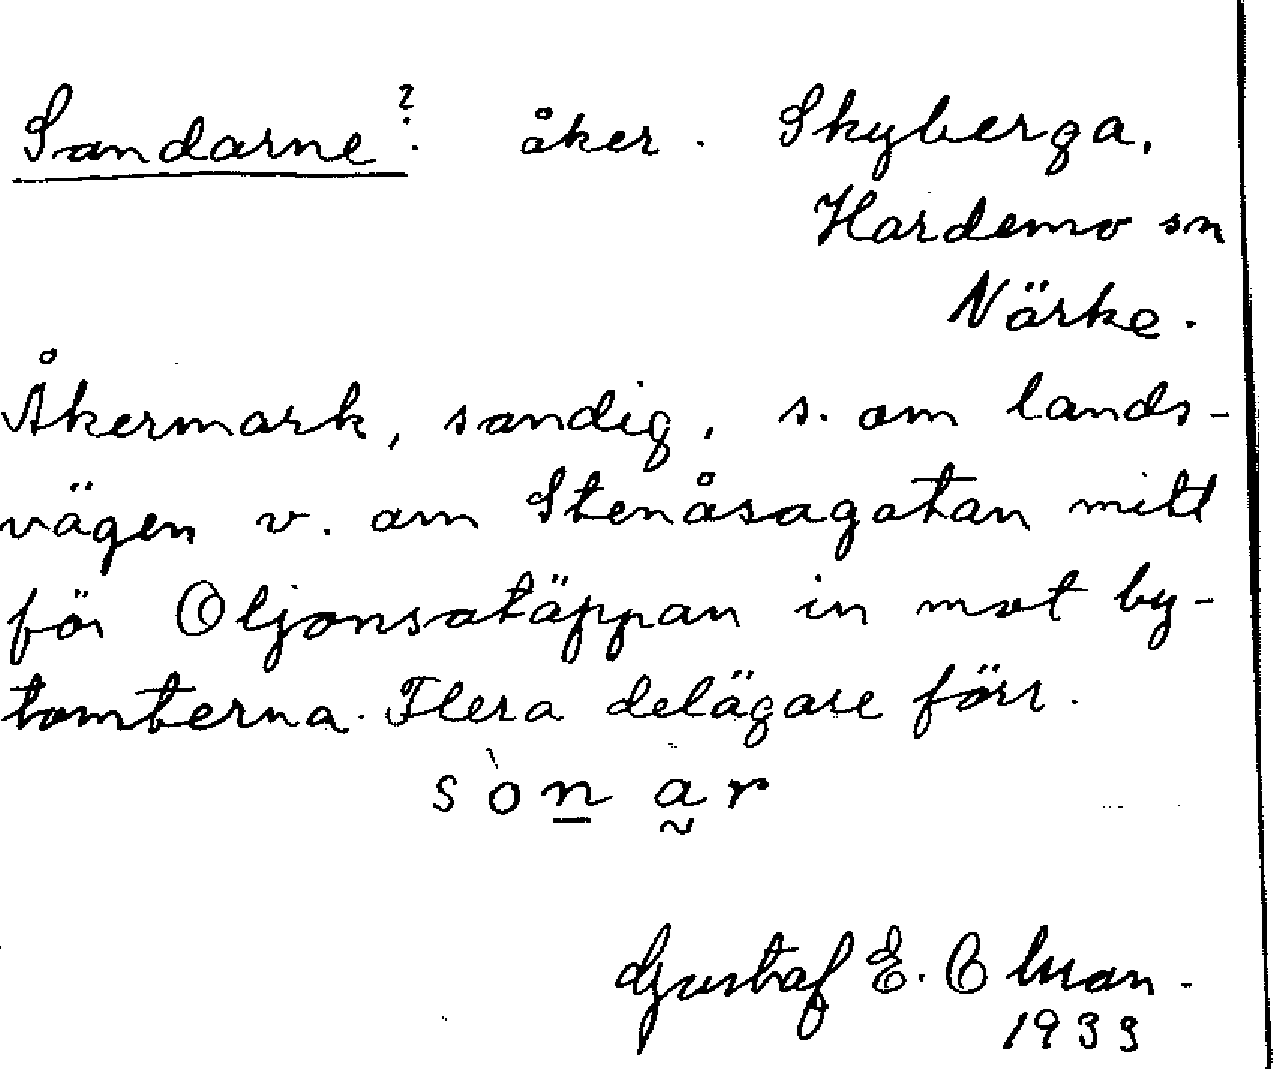 Sandarne? åker. Skyberga,
Hardemo sn
Närke.
Åkermark, sandig, s. om lands-
vägen v. om Stenåsagatan mitt
för Oljonsatäppan in mot by-
tomterna. Flera delägare förr.
sònar
Gustaf E.
1933